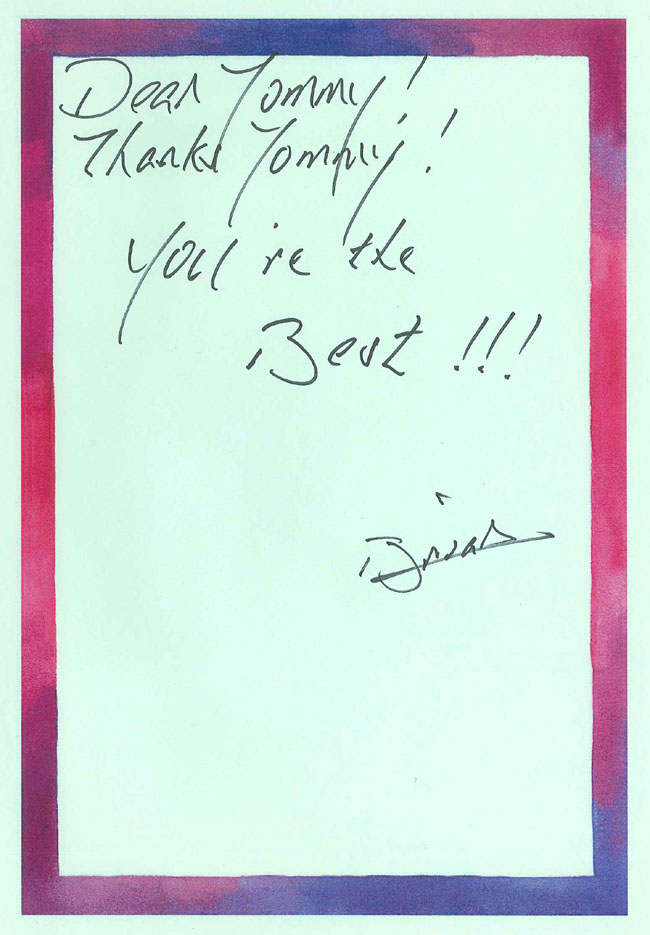 Dear Tommy!
Thanks Tommy!
You're the
Best!!!
Brian